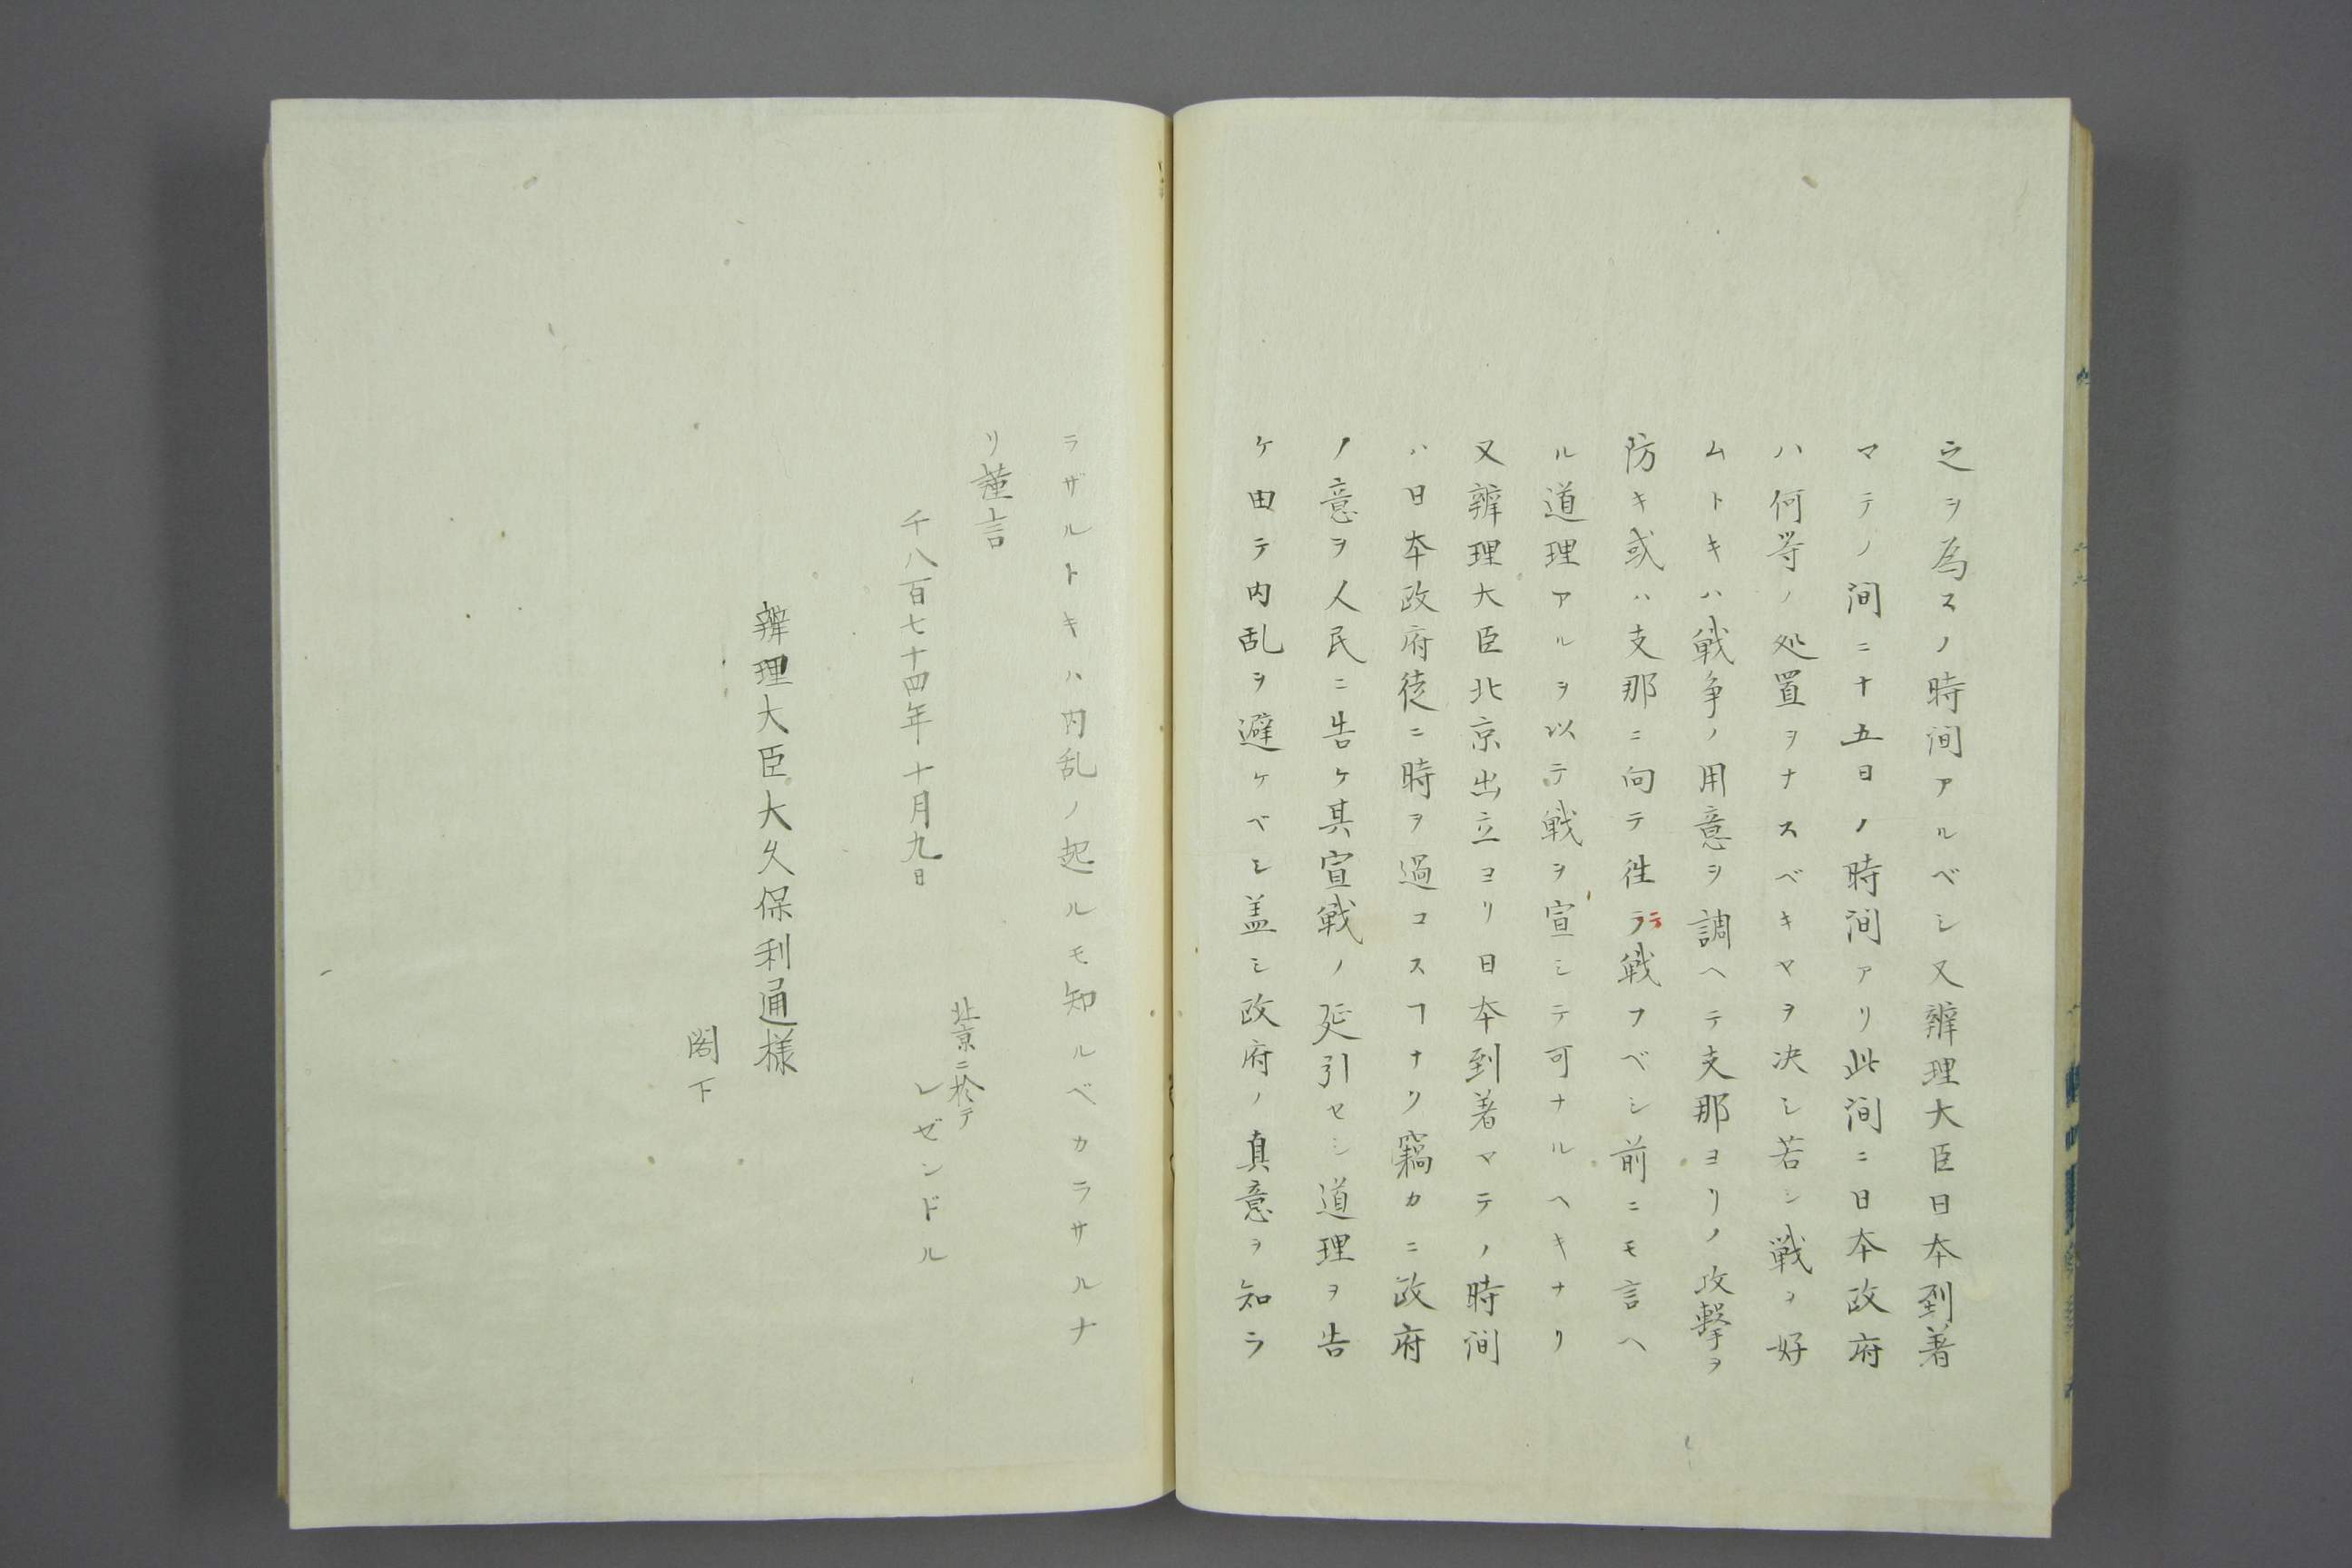 之ヲ為スノ時间アルベシ又辨理大臣日本到著
マテノ间ニ十五日ノ時间アリ此间ニ日本政府
ハ何等ノ処置ヲナスベキヤヲ决シ若シ戦ヲ好
ムトキハ戦争ノ用意ヲ調ヘテ支那ヨリノ攻撃ヲ
防キ或ハ支那ニ向テ徃テ戦フベシ前ニモ言ヘ
ル道理アルヲ以テ戦ヲ宣シテ可ナルヘキナリ
又辨理大臣北京出立ヨリ日本到著マテノ時间
ハ日本政府徒ニ時ヲ過コスヿナク竊カニ政府
ノ意ヲ人民ニ告ケ其宣戦ノ延引セシ道理ヲ告
ケ由テ内乱ヲ避ケベシ盖シ政府ノ真意ヲ知ラ
ラザルトキハ内乱ノ起ルモ知ルベカラサルナ
リ謹言
北京ニ於テ
千八百七十四年十月九日 レゼンドル
辨理大臣大久保利通様
閣下